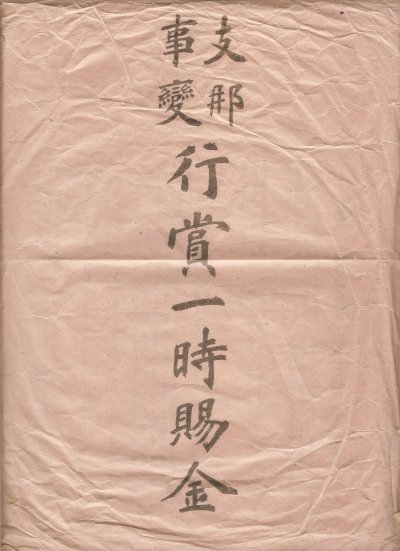 支那
事變
行賞一時賜金